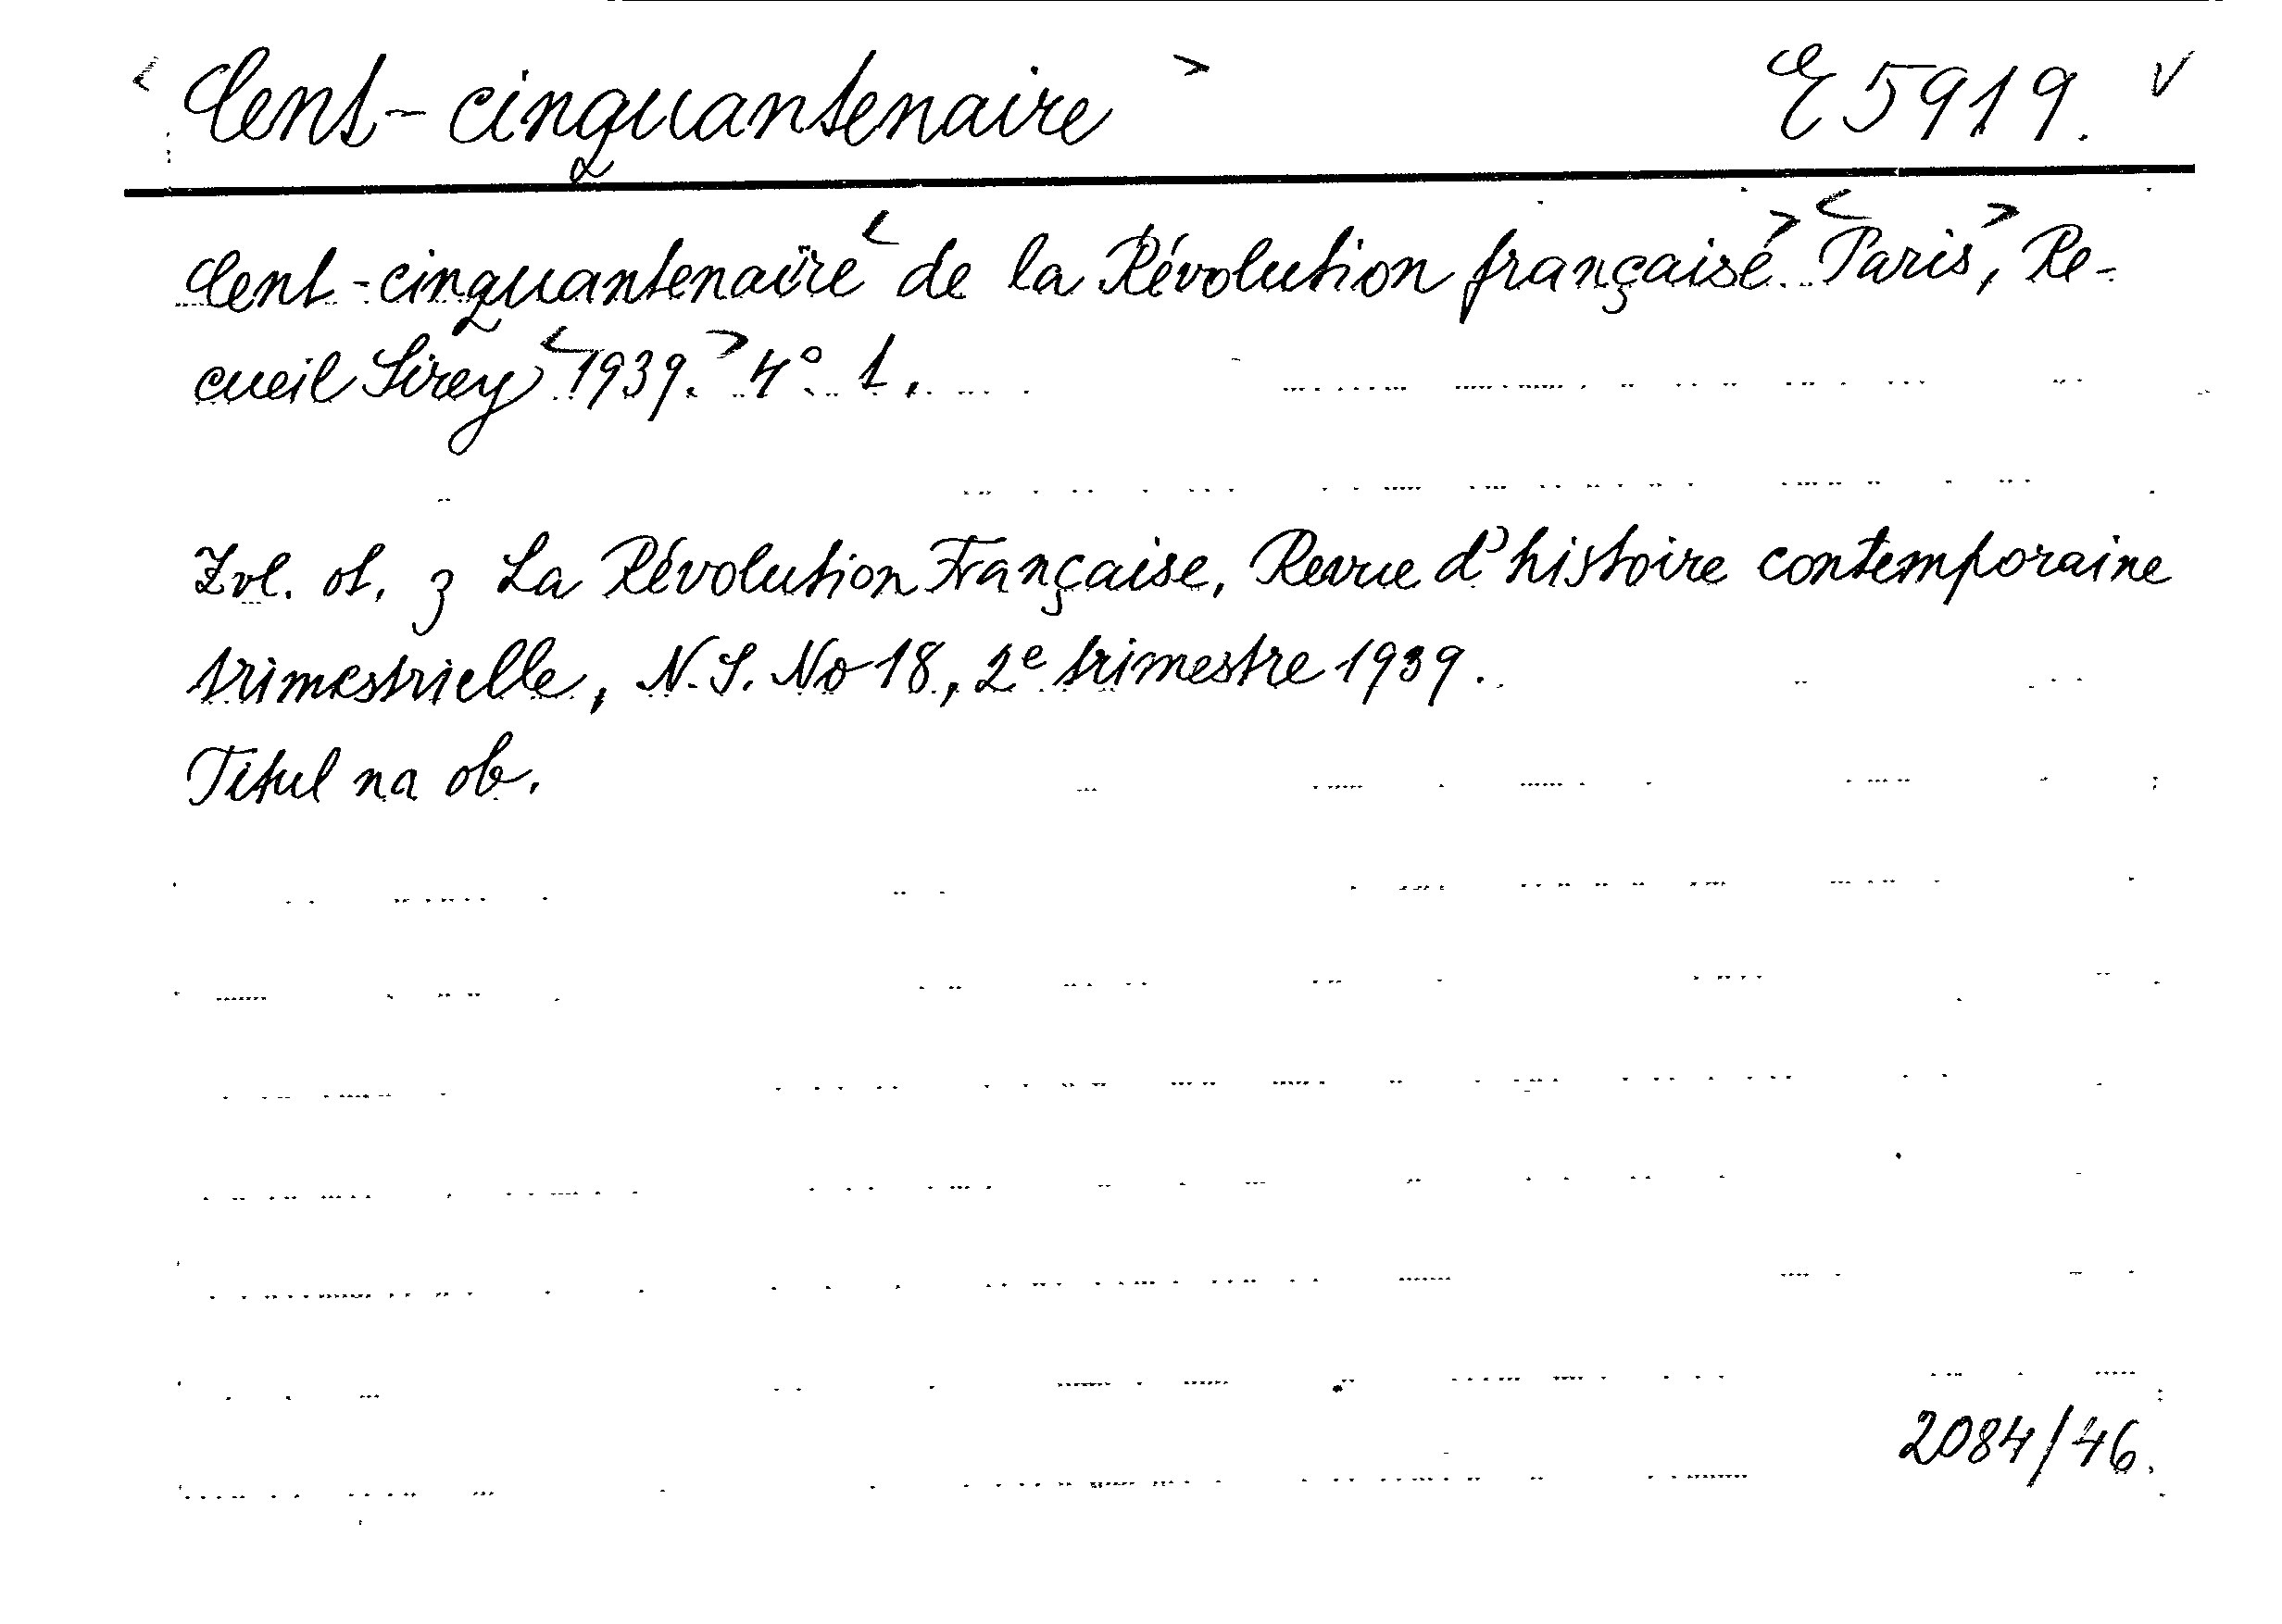 < Cent-cinquantenaire > E 5919. v
Cent-cinquantenaire < de la Révolution française. > < Paris, > Re-
cueil Sirey < 1939. > 4° 1.
Zvl. ot. z La Révolution Française, Revue d'histoire contemporaine
trimestrielle, N. S. No 18, 2e trimestre 1939.
Titul na ob.
2084/46.